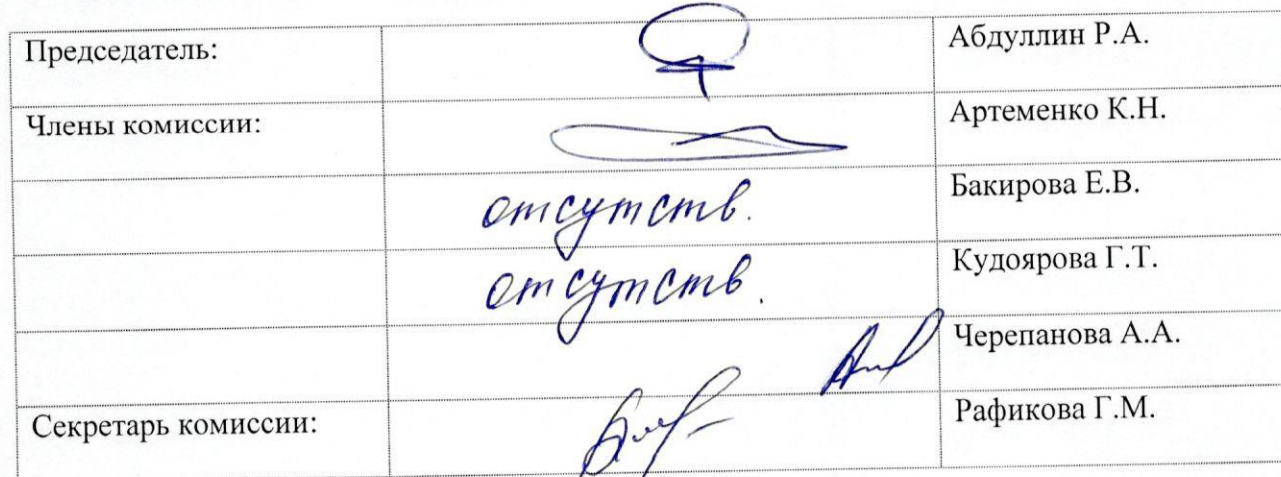 Председатель: Абдуллин Р.А.
Члены комиссии: Артеменко К.Н.
отсутств. Бакирова Е.В.
отсутств. Кудоярова Г.Т.
Черепанова А.А.
Секретарь комиссии: Рафикова Г.М.